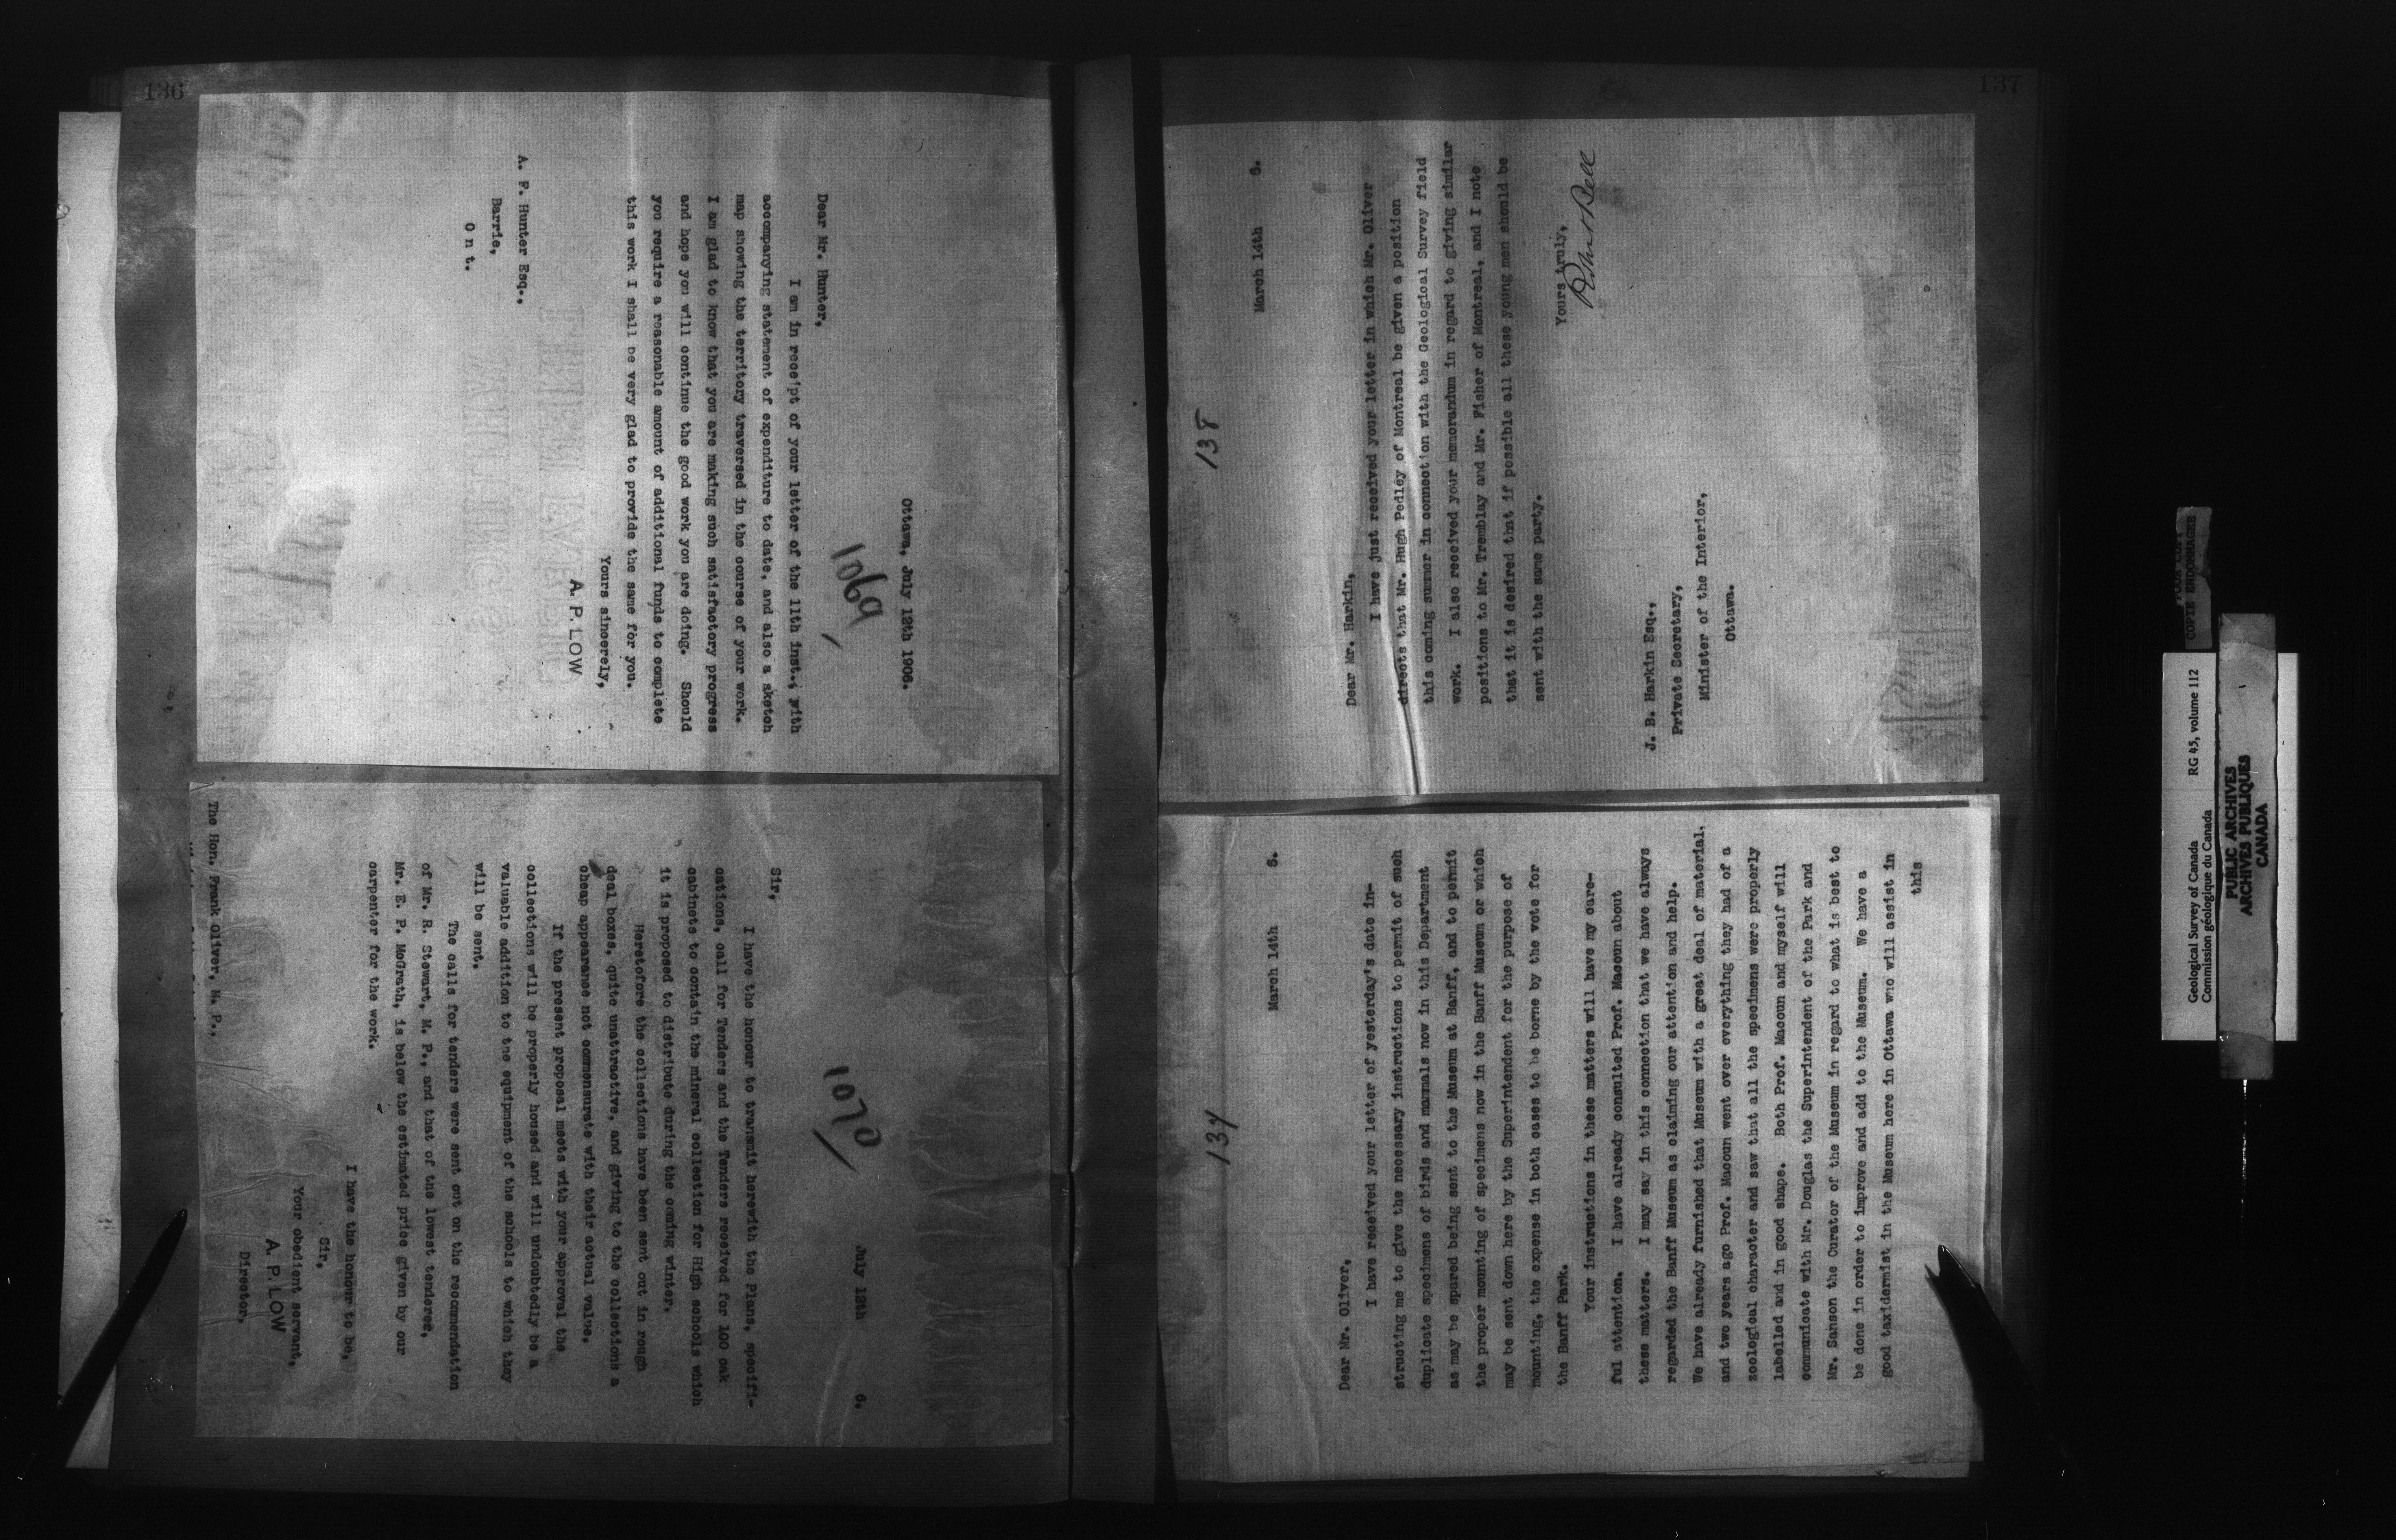 136
1069
Ottawa, July 12th 1906.
Dear Mr. Hunter,
I am in receipt of your letter of the 11th inst., with
accompanying statement of expenditure to date, and also a sketch
map showing the territory traversed in the course of your work.
I am glad to know that you are making such satisfactory progress
and hope you will continue the good work you are doing. Should
you require a reasonable amount of additional funds to complete
this work I shall be very glad to provide the same for you.
Yours sincerely,
A. P. LOW
A. F. Hunter Esq.,
Barrie,
Ont.
1070
July 12th 6.
Sir,
I have the honour to transmit herewith the Plans, specifi-
cations, call for Tenders and the Tenders received for 100 oak
cabinets to contain the mineral collection for High schools which
it is proposed to distribute during the coming winter.
Heretofore the collections have been sent out in rough
deal boxes, quite unattractive, and giving to the collections a
cheap appearance not commensurate with their actual value.
If the present proposal meets with your approval the
collections will be properly housed and will undoubtedly be a
valuable addition to the equipment of the schools to which they
will be sent.
The calls for tenders were sent out on the recommendation
of Mr. R. Stewart, M. P., and that of the lowest tenderer,
Mr. E. P. McGrath, is below the estimated price given by our
carpenter for the work.
I have the honour to be,
Sir,
Your obedient servant,
A. P. LOW
Director.
The Hon. Frank Oliver, M. P.,
137
137
March 14th 6.
Dear Mr. Oliver,
I have received your letter of yesterday's date in-
structing me to give the necessary instructions to permit of such
duplicate specimens of birds and mammals now in this Department
as may be spared being sent to the Museum at Banff, and to permit
the proper mounting of specimens now in the Banff Museum or which
may be sent down here by the Superintendent for the purpose of
mounting, the expense in both cases to be borne by the vote for
the Banff Park.
Your instructions in these matters will have my care-
ful attention. I have already consulted Prof. Macoun about
these matters. I may say in this connection that we have always
regarded the Banff Museum as claiming our attention and help.
We have already furnished that Museum with a great deal of material,
and two years ago Prof. Macoun went over everything they had of a
zoological character and saw that all the specimens were properly
labelled and in good shape. Both Prof. Macoun and myself will
communicate with Mr. Douglas the Superintendent of the Park and
Mr. Sanson the Curator of the Museum in regard to what is best to
be done in order to improve and add to the Museum. We have a
good taxidermist in the Museum here in Ottawa who will assist in
this
138
March 14th 6.
Dear Mr. Harkin,
I have just received your letter in which Mr. Oliver
directs that Mr. Hugh Pedley of Montreal be given a position
this coming summer in connection with the Geological Survey field
work. I also received your memorandum in regard to giving similar
positions to Mr. Tremblay and Mr. Fisher of Montreal, and I note
that it is desired that if possible all these young men should be
sent with the same party.
Yours truly,
Robert Bell
J. B. Harkin Esq.,
Private Secretary,
Minister of the Interior,
Ottawa.
COPIE ENDOMMAGEE
Geological Survey of Canada RG 45, volume 112
Commission géologique du Canada
PUBLIC ARCHIVES
ARCHIVES PUBLIQUES
CANADA